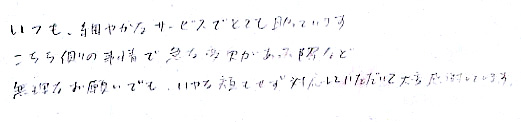 いつも、細やかなサービスでとても助っています
こちら側の事情で急な変更があった際など
無理なお願いでも、いやな顔もせず対応していただいて大変感謝しています。